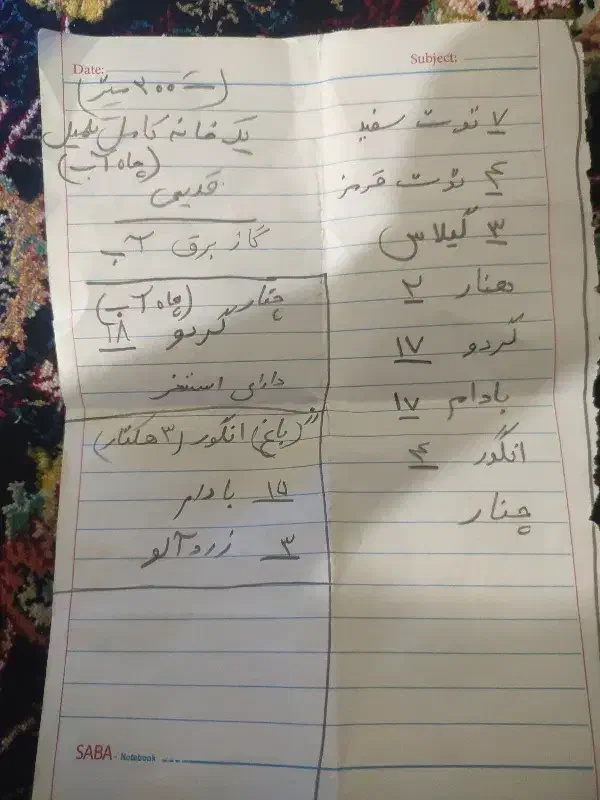 Subject:
۷ توت سفید
۴ توت قرمز
۳ گیلاس
هنار ۲
گردو ۱۷
بادام ۱۷
انگور ۴
چنار
Date:
(۳۰۰ متر)
یک خانه کامل
(چاه آب)
قدیمی
گاز برق آب
چنار (چاه آب)
گردو ۱۸
دارای استخر
(باغ) انگور (۳ هکتار)
بادام
۳ زردآلو
SABA - Notebook